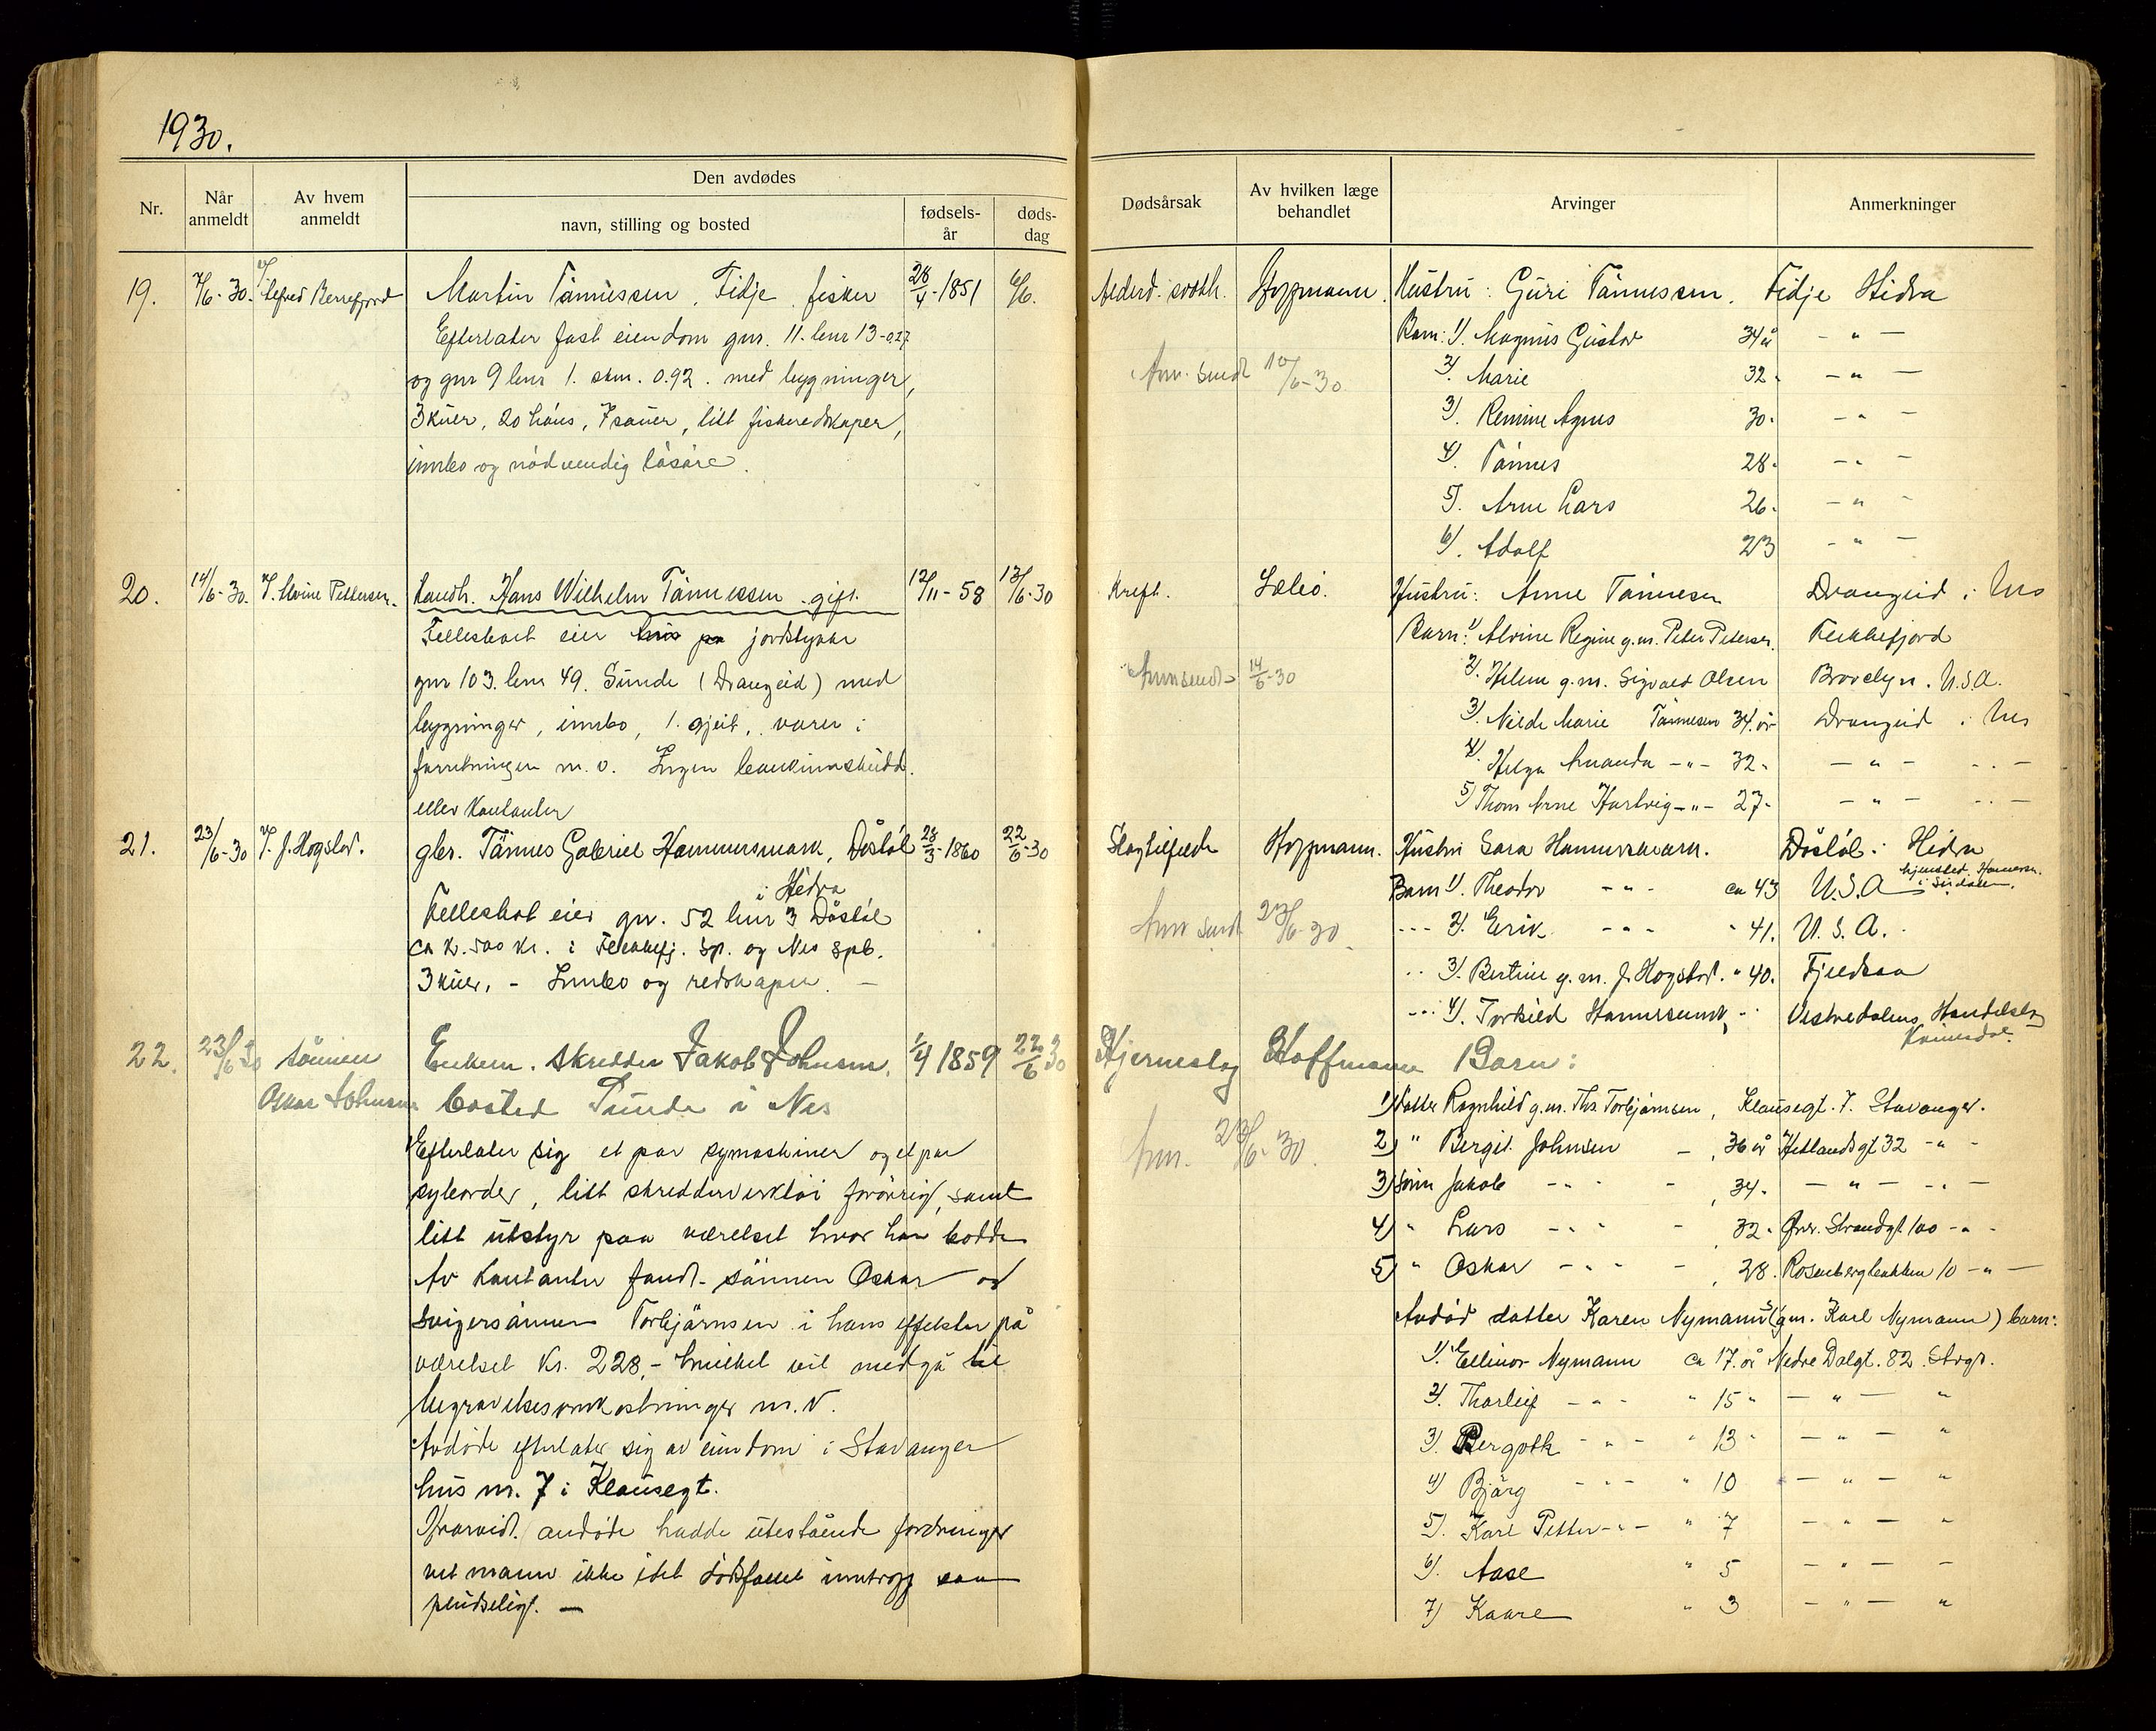 1930.
Nr.
Når anmeldt
Av hvem anmeldt
Den avdødes
navn, stilling og bosted
fødsels-år
døds-dag
Dødsårsak
Av hvilken læge behandlet
Arvinger
Anmerkninger
19. 7/6-30. v/ Alfred Berrefjord Martin Tønnessen, Fidje fisker 28/4-1851 6/6.
Efterlater fast eiendom gnr. 11. bnr 13-0,27
og gnr 9 bnr 1. skm. 0.92. med bygninger,
3 kuer, 20 høns, 7 sauer, litt fiskeredskaper,
innbo og nødvendig løsøre.
Alderd. svækk. Hoffmann. Hustru: Guri Tønnessen. Fidje Hidra
Barn: 1). Magnus Gustav 34 å - " -
2). Marie 32. - " -
3). Remine Agnes 30. - " -
4). Tønnes 28. - " -
5). Arne Lars 26. - " -
6). Adolf 23 - " -
Anm. sendt 10/6-30.
20. 14/6-30. v/ Alvine Pettersen. Handh. Hans Wilhelm Tønnessen gift. 12/11-58 13/6-30
Fellesboet eier hus på jordstykke
gnr 103. bnr 49. Sunde (Drangeid) med
bygninger, innbo, 1. gjeit, varer i
forretningen m. v. Ingen bankinnskudd
eller kontanter
Kreft. Hustru: Anne Tønnesen Drangeid i Nes
Barn: 1) Alvine Regine g. m. Peter Petersen. Flekkefjord
2). Helene g. m. Sigvald Olsen Brooclyn. U.S.A.
3). Nilde Marie Tønnesen 34. år Drangeid i Nes
4). Helga Amanda - " - 32. - " - - " -
5) Thom Arne Hartvig - " - 27. - " - - " -
Anm sendt 14/6-30
21. 23/6-30 v/ J. Hogstad. gbr. Tønnes Gabriel Hammersmark, Dåsløl 28/3-1860 22/6-30
i Hidra
Fellesbot eier gnr. 52 bnr 3 Dåsløl
ca k. 500 kr. i Flekkefj. sp. og Nes spb.
3 kuer, - Innbo og redskaper. -
Slagtilfelde Hoffmann. Hustru Sara Hammersmark. Dåsløl i Hidra
Barn 1). Theodor - " - ca 43 U.S.A hjemsted. Hammersm. i Sirdalen.
- - - 2). Erik - " - " 41. U. S. A.
- - 3). Bertine g. m. J. Hogstad. " 40. Fjeldsaa
- - - 4). Torkild Hammersmark - " Vestredalens Handelslag
Kvinesdal.
Anm sendt 23/6-30.
22. 23/6 30 sønnen Oskar Johnsen
Enkem. skredder Jakob Johnsen. 1/4 1859 22/6 30
bosted Sunde i Nes
Efterlater sig et par symaskiner og et par
syborder, litt skredderverktøi forøvrig, samt
litt utstyr paa værelset hvor han bodde
Av kontanter fandt sønnen Oskar og
svigersønnen Torbjørnsen i hans effekter på
værelset kr. 228,- hvilket vil medgå til
begravelsesomkostninger m. v.
Avdøde efterlater sig av eiendom i Stavanger
hus nr. 7 i Klausegt.
Hvorvidt avdøde hadde utestående fordringer
vet mann ikke idet dødsfallet inntraff saa
pludselig. -
Hjerneslag Hoffmann Barn:
1) datter Ragnhild g. m. Ths Torbjørnsen, Klausegt. 7. Stavanger.
2) " Bergit Johnsen -, 36 år Hetlandsgt 32 - " -
3) sønn Jakob - " - -, 34. - " - - " -
4) " Lars - " - -, 32. Øvr. Strandgt 100 - " -
5) " Oskar - " - -, 28. Rosenbergbakken 10 - " -
Anm. 23/6-30.
Avdød datter Karen Nymanns (g m. Karl Nymann) barn:
1). Ellinor Nymann ca 17. år Nedre Dalgt. 82. Stvgr.
2). Thorleif - " - " 15 " - " - "
3). Bergoth - " - " 13 " - " - "
4) Bjørg - " - " 10 - " - "
5). Karl Petter - " - " 7 - " - "
6). Aase " 5 - " - "
7) Kaare " 3 - " - "